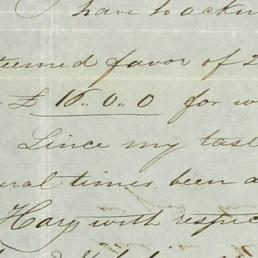 I have to ackn
teemed favor of 2
£ 16.. 0.. 0 for w
Since my last
eral times been a
Hary with respec